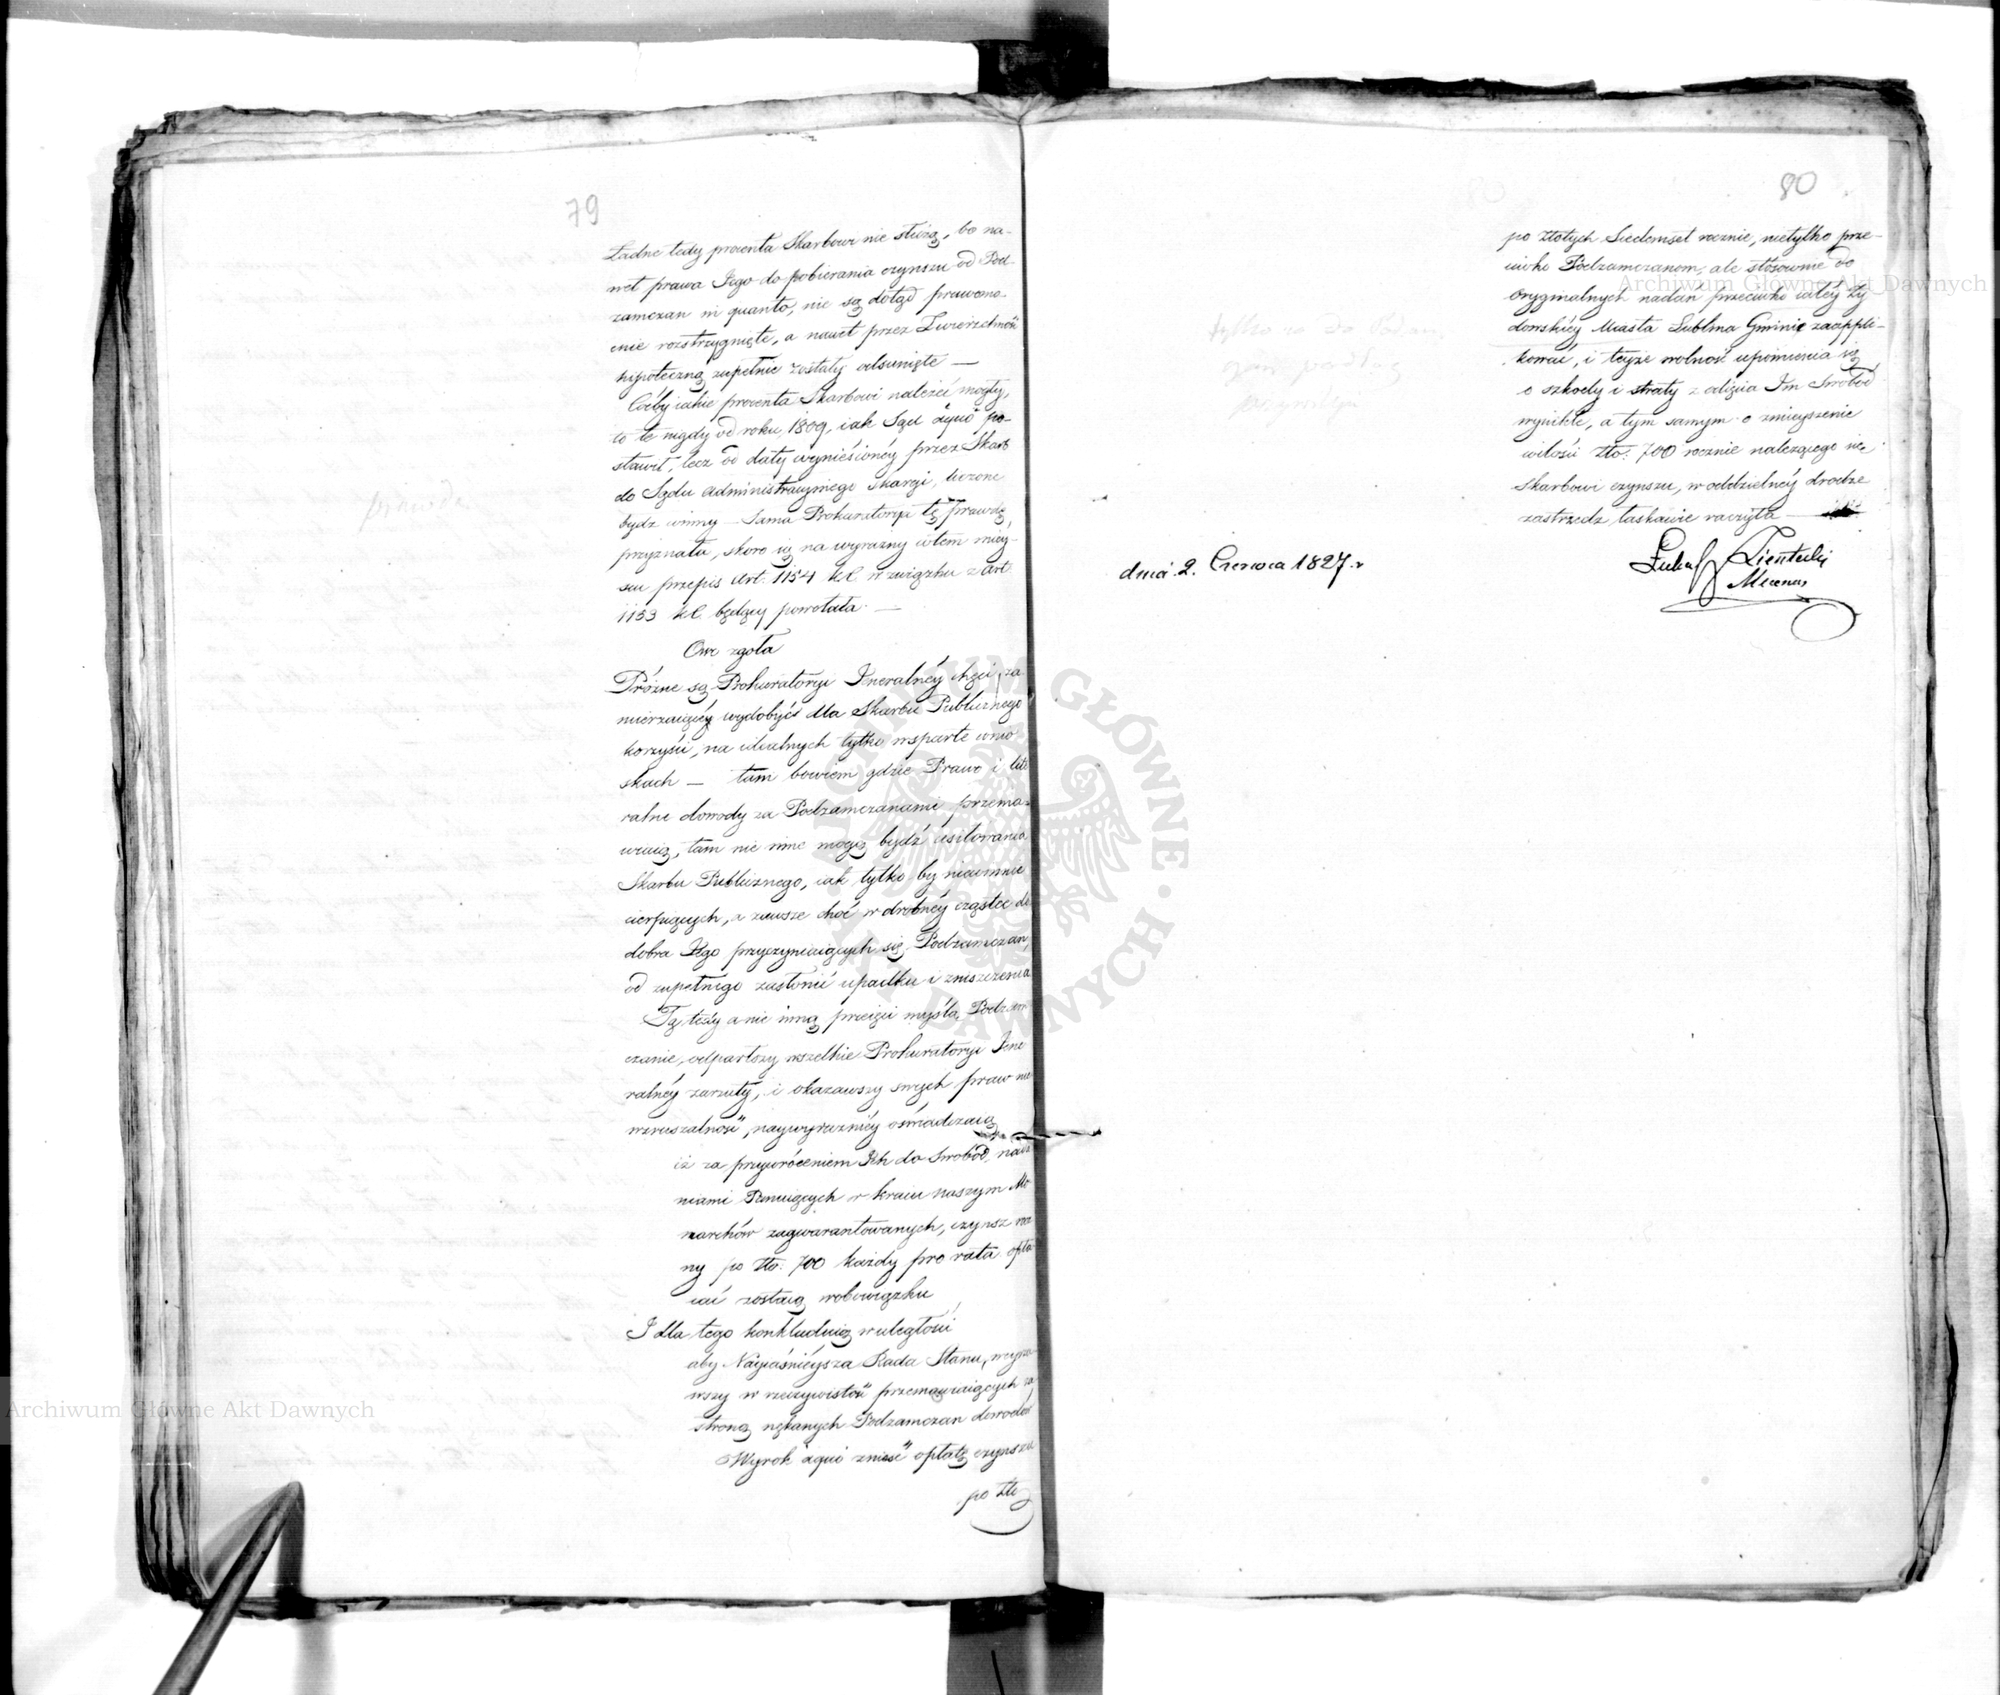 79
Żadne tedy procenta Skarbowi nie służą, bo na-
wet prawa Jego do pobierania czynszu od Pod-
zamczan in quanto, nie są dotąd prawomo-
cnie rozstrzygnięte, a nawet przez Zwierzchność
hipoteczną zupełnie zostały odsunięte —
Coby iakie procenta Skarbowi należeć mogły,
to te nigdy od roku 1809, iak Sąd àquo po-
stawił, lecz od daty wyniesionéy przez Skarb
do Sądu Administracyinego Skargi, liczone
bydź winny — Sama Prokuratorya tę prawdę
przyznała, skoro się na wyrazny w tem miey-
scu przepis Art. 1154 K.C. w związku z Art
1153 K.C. będący powołała. —
Owo zgoła
Próżne są Prokuratoryi Jeneralnéy chęci, za
mierzaiącéy wydobyć dla Skarbu Publicznego
korzyści, na idealnych tylko wsparte wnio
skach — tam bowiem gdzie Prawo i lite
ralne dowody za Podzamczanami przema-
wiaią, tam nie inne mogą bydź usiłowania
Skarbu Publicznego, iak tylko by niewinnie
cierpiących, a zawsze choć w drobnéy cząstce do
dobra Jego przyczyniaiących się Podzamczan,
od zupełnego zasłonić upadku i zniszczenia
Tą tedy a nie inną przeięci myślą, Podzam
czanie, odpartszy wszelkie Prokuratoryi Jene
ralnéy zarzuty, i okazawszy swych praw nie
wzruszalność, naywyraźniéy oświadczaią
iż za przywróceniem Ich do Swobód, nada
niami Panuiących w kraiu naszym Mo
narchów zagwarantowanych, czynsz rocz
ny po Złp: 700 każdy pro rata opła
cać zostaią w obowiązku
I dla tego konkluduią w uległości
aby Nayiaśnieysza Rada Stanu, weyrza-
wszy w rzeczywistość przemawiaiących za
stroną nękanych Podzamczan dowodów
Wyrok àquo znieść opłatę czynszu
po Złt
80
po Złotych Siedemset rocznie, nietylko prze-
ciwko Podzamczanom, ale stosownie do
oryginalnych nadań przeciwko całey Ży
dowskiey Miasta Lublina Gminie zaappli-
kować, i teyże wolność upomnienia się
o szkody i straty z odięcia Im Swobód
wynikłe, a tym samym o zmnieyszenie
ilości Złp: 700 rocznie należącego się
Skarbowi czynszu, w oddzielnéy drodze
zastrzedz łaskawie raczyła —
dnia 2. Czerwca 1827. r
Łukasz
Mecenas
tylko
podług
przywileju
prawda
Archiwum Główne Akt Dawnych
Archiwum Główne Akt Dawnych
ARCHIWUM GŁÓWNE · AKT DAWNYCH ·